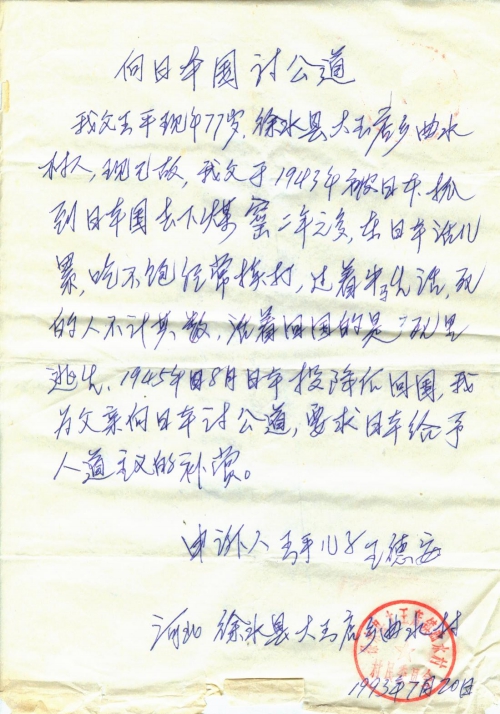 向日本国讨公道
我父王平现年77岁，徐水县大王店乡曲水
村人，现已故，我父于1943年被日本抓
到日本国去下煤窑二年之多，在日本活儿
累，吃不饱经常挨打，过着牛马生活，死
的人不计其数，活着回国的是死里
逃生，1945年8月日本投降后回国，我
为父亲向日本讨公道，要求日本给予
人道主义的补赏。
申诉人王平儿子王德安
河北徐水县大王店乡曲水村
1993年7月20日